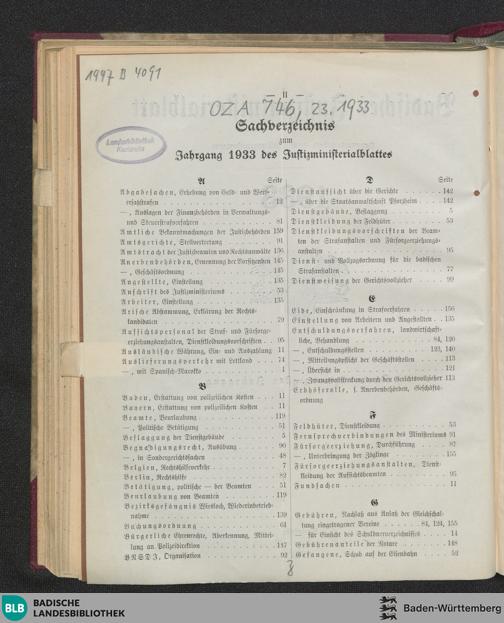 1997 B 4091
II
OZA 746, 23.1933
Sachverzeichnis
zum
Jahrgang 1933 des Justizministerialblattes
Landesbibliothek
Karlsruhe
A Seite
Abgabesachen, Erhebung von Geld- und Wert-
ersatzstrafen 12
—, Auslagen der Finanzbehörden in Verwaltungs-
und Steuerstrafverfahren 81
Amtliche Bekanntmachungen der Justizbehörden 159
Amtsgerichte, Stellvertretung 91
Amtstracht der Justizbeamten und Rechtsanwälte 156
Anerbenbehörden, Ernennung der Vorsitzenden 145
—, Geschäftsordnung 145
Angestellte, Einstellung 135
Anschrift des Justizministeriums 53
Arbeiter, Einstellung 135
Arische Abstammung, Erklärung der Rechts-
kandidaten 79
Aufsichtspersonal der Straf- und Fürsorge-
erziehungsanstalten, Dienstkleidungsvorschriften 95
Ausländische Währung, Ein- und Auszahlung 11
Auslieferungsverkehr mit Lettland 71
—, mit Spanisch-Marokko 1
B
Baden, Erstattung von polizeilichen Kosten 11
Bayern, Erstattung von polizeilichen Kosten 11
Beamte, Beurlaubung 119
—, Politische Betätigung 51
Beflaggung der Dienstgebäude 5
Begnadigungsrecht, Ausübung 96
—, in Sondergerichtssachen 48
Belgien, Rechtshilfeverkehr 7
Berlin, Rechtshilfe 82
Betätigung, politische — der Beamten 51
Beurlaubung von Beamten 119
Bezirksgefängnis Wiesloch, Wiederinbetrieb-
nahme 139
Buchungsordnung 61
Bürgerliche Ehrenrechte, Aberkennung, Mittei-
lung an Polizeidirektion 147
BNSDJ, Organisation 92
D Seite
Dienstaufsicht über die Gerichte 142
—, über die Staatsanwaltschaft Pforzheim 142
Dienstgebäude, Beflaggung 5
Dienstkleidung der Feldhüter 53
Dienstkleidungsvorschriften der Beam-
ten der Strafanstalten und Fürsorgeerziehungs-
anstalten 95
Dienst- und Vollzugsordnung für die badischen
Strafanstalten 77
Dienstweisung der Gerichtsvollzieher 99
E
Eide, Einschränkung in Strafverfahren 156
Einstellung von Arbeitern und Angestellten 135
Entschuldungsverfahren, landwirtschaft-
liche, Behandlung 84, 120
—, Entschuldungsstellen 123, 140
—, Mitteilungspflicht der Geschäftsstellen 113
—, Übersicht in 121
—, Zwangsvollstreckung durch den Gerichtsvollzieher 113
Erbhöferolle, s. Anerbenbehörden, Geschäfts-
ordnung
F
Feldhüter, Dienstkleidung 53
Fernsprechverbindungen des Ministeriums 91
Fürsorgeerziehung, Durchführung 87
—, Unterbringung der Zöglinge 155
Fürsorgeerziehungsanstalten, Dienst-
kleidung der Aufsichtsbeamten 95
Fundsachen 11
G
Gebühren, Nachlaß aus Anlaß der Gleichschal-
tung eingetragener Vereine 81, 124, 155
— für Einsicht des Schuldnerverzeichnisses 14
Gebührenanteile der Notare 148
Gefangene, Schub auf der Eisenbahn 52
BLB BADISCHE
LANDESBIBLIOTHEK
Baden-Württemberg